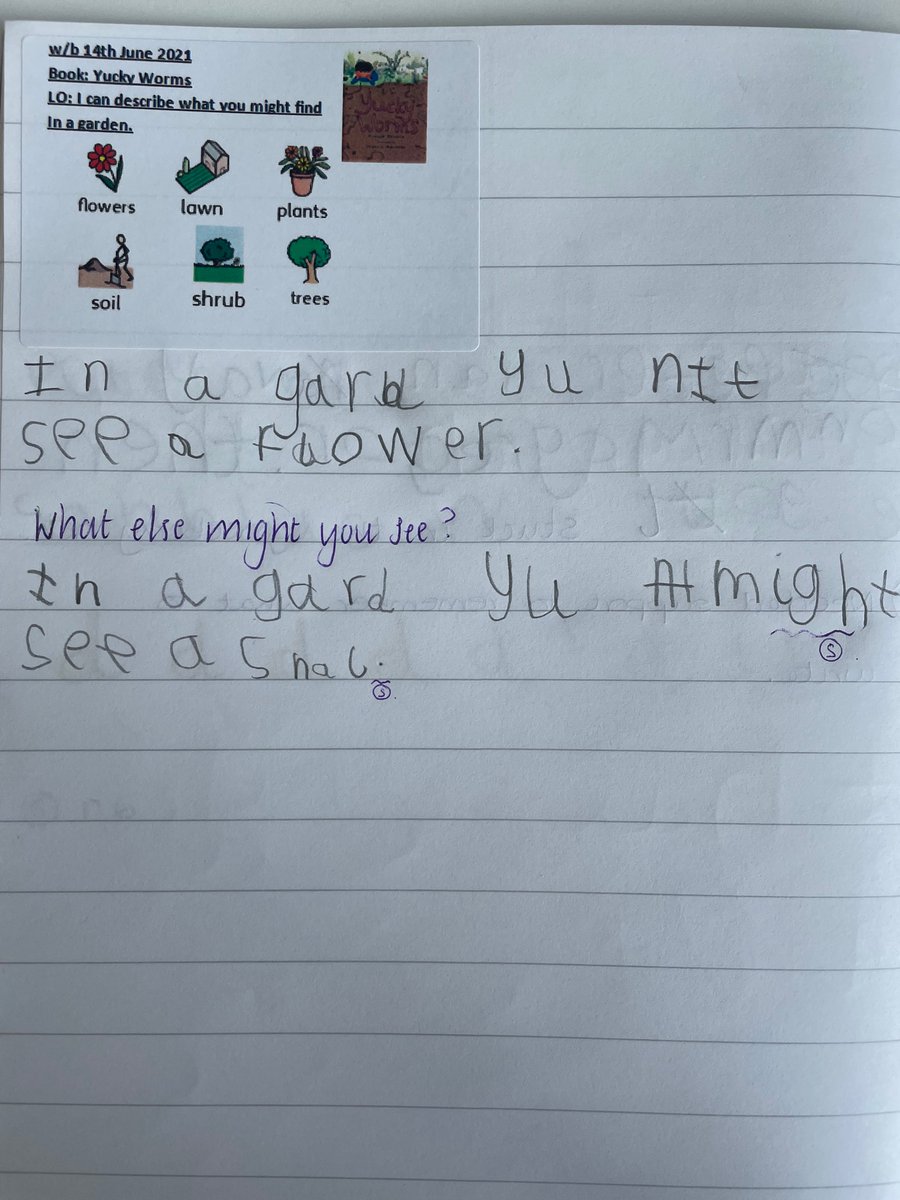 w/b 14th June 2021
Book: Yucky Worms
LO: I can describe what you might find
In a garden.
Yucky
Worms
flowers lawn plants
soil shrub trees
In a gard yu nIt
see a fluower.
What else might you see?
In a gard yu might
see a snal.
S
S